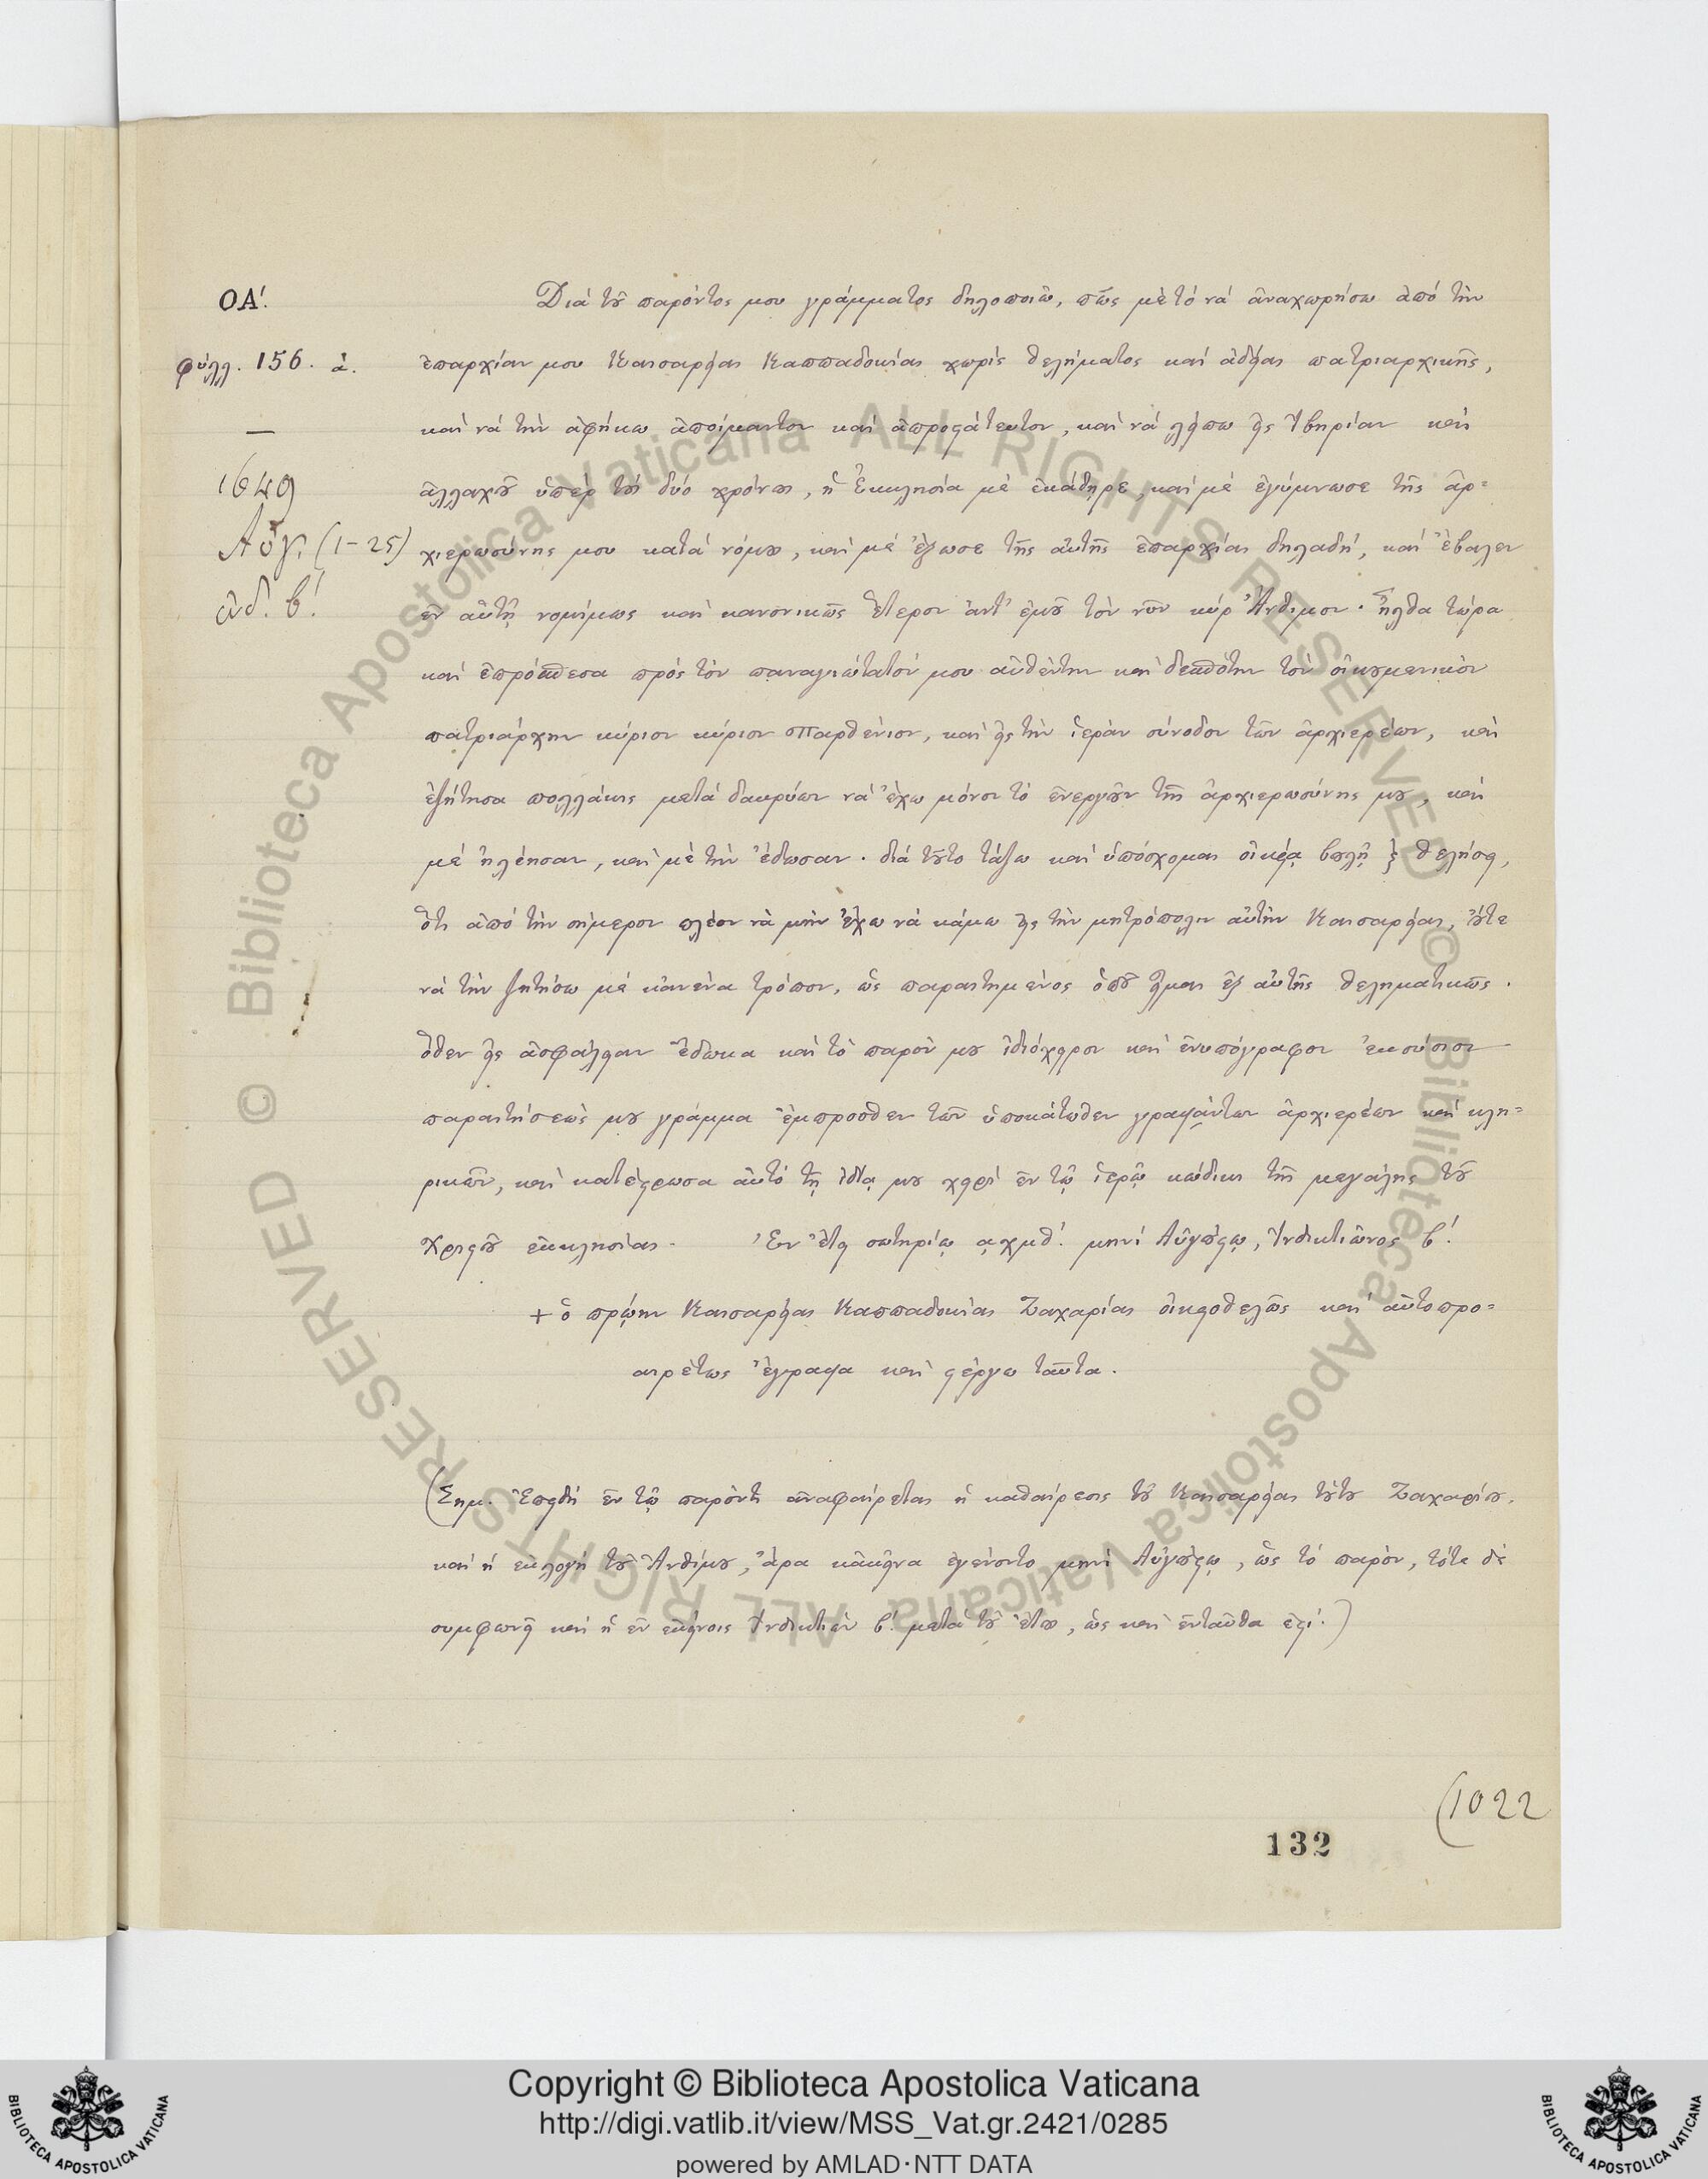 ΟΑ΄.
φύλλ. 156. ά.
1649
Αὔγ. (1-25)
ἰνδ. β΄.
Διά τοῦ παρόντος μου γράμματος δηλοποιῶ, πῶς μὲ τό νά ἀναχωρήσω ἀπό τὴν
ἐπαρχίαν μου Καισαρείας Καππαδοκίας χωρίς θελήματος καί ἀδείας πατριαρχικῆς,
καί νά τὴν ἀφήκω ἀποίμαντον καί ἀπροστάτευτον, καί νά λείπω εἰς Ἰβηρίαν καί
ἀλλαχοῦ ὑπέρ τούς δύο χρόνους, ἡ Ἐκκλησία μὲ ἐκάθῃρε, καί μέ ἐγύμνωσε τῆς ἀρ=
χιερωσύνης μου κατά νόμους, καί μέ ἔξωσε τῆς αὐτῆς ἐπαρχίας δηλαδή, καί ἔβαλεν
ἐν αὐτῇ νομίμως καί κανονικῶς ἕτερον ἀντ' ἐμοῦ τόν νῦν κύρ Ἄνθιμον. ἦλθα τώρα
καί ἐπρόσπεσα πρός τόν παναγιώτατόν μου αὐθέντην καί δεσπότην τόν οἰκουμενικόν
πατριάρχην κύριον κύριον Παρθένιον, καί εἰς τὴν ἱεράν σύνοδον τῶν ἀρχιερέων, καί
ἐζήτησα πολλάκις μετά δακρύων νά ἔχω μόνον τό ἐνεργοῦν τῆς ἀρχιερωσύνης μου, καί
μέ ἠλέησαν, καί μέ τὴν ἔδωσαν. διά τοῦτο τάζω καί ὑπόσχομαι οἰκείᾳ βουλῇ ϗ θελήσει,
ὅτι ἀπό τὴν σήμερον πλέον νά μὴν ἔχω νά κάμω εἰς τὴν μητρόπολιν αὐτὴν Καισαρείας, οὔτε
νά τὴν ζητήσω μέ κἀνένα τρόπον, ὡς παραιτημένος ὁποῦ εἶμαι ἐξ αὐτῆς θεληματικῶς.
ὅθεν εἰς ἀσφάλειαν ἔδωκα καί τό παρόν μου ἰδιόχειρον καί ἐνυπόγραφον ἑκούσιον
παραιτήσεώς μου γράμμα ἔμπροσθεν τῶν ὑποκάτωθεν γραψάντων ἀρχιερέων καί κλη=
ρικῶν, καί κατέστρωσα αὐτό τῇ ἰδίᾳ μου χειρί ἐν τῷ ἱερῷ κώδικι τῆς μεγάλης τοῦ
Χριστοῦ ἐκκλησίας. Ἐν ἔτει σωτηρίῳ ͵αχμθ΄. μηνί Αὐγούστῳ, Ἰνδικτιῶνος β΄.
+ ὁ πρῴην Καισαρείας Καππαδοκίας Ζαχαρίας οἰκειοθελῶς καί αὐτοπρο=
αιρέτως ἔγραψα καί στέργω ταῦτα.
(Σημ. Ἐπειδή ἐν τῷ παρόντι ἀναφαίρεται ἡ καθαίρεσις τοῦ Καισαρείας τούτου Ζαχαρίου,
καί ἡ ἐκλογή τοῦ Ἀνθίμου, ἄρα κἀκεῖνα ἐγένοντο μηνί Αὐγούστῳ, ὡς τό παρόν, τότε δέ
συμφωνεῖ καί ἡ ἐν ἐκείνοις Ἰνδικτιών β΄. μετά τοῦ ἔτους, ὡς καί ἐνταῦθα ἐστί.)
(1022
132
© Biblioteca Apostolica Vaticana ALL RIGHTS RESERVED
© Biblioteca Apostolica Vaticana ALL RIGHTS RESERVED
Copyright © Biblioteca Apostolica Vaticana
http://digi.vatlib.it/view/MSS_Vat.gr.2421/0285
powered by AMLAD·NTT DATA
BIBLIOTECA APOSTOLICA VATICANA
BIBLIOTECA APOSTOLICA VATICANA